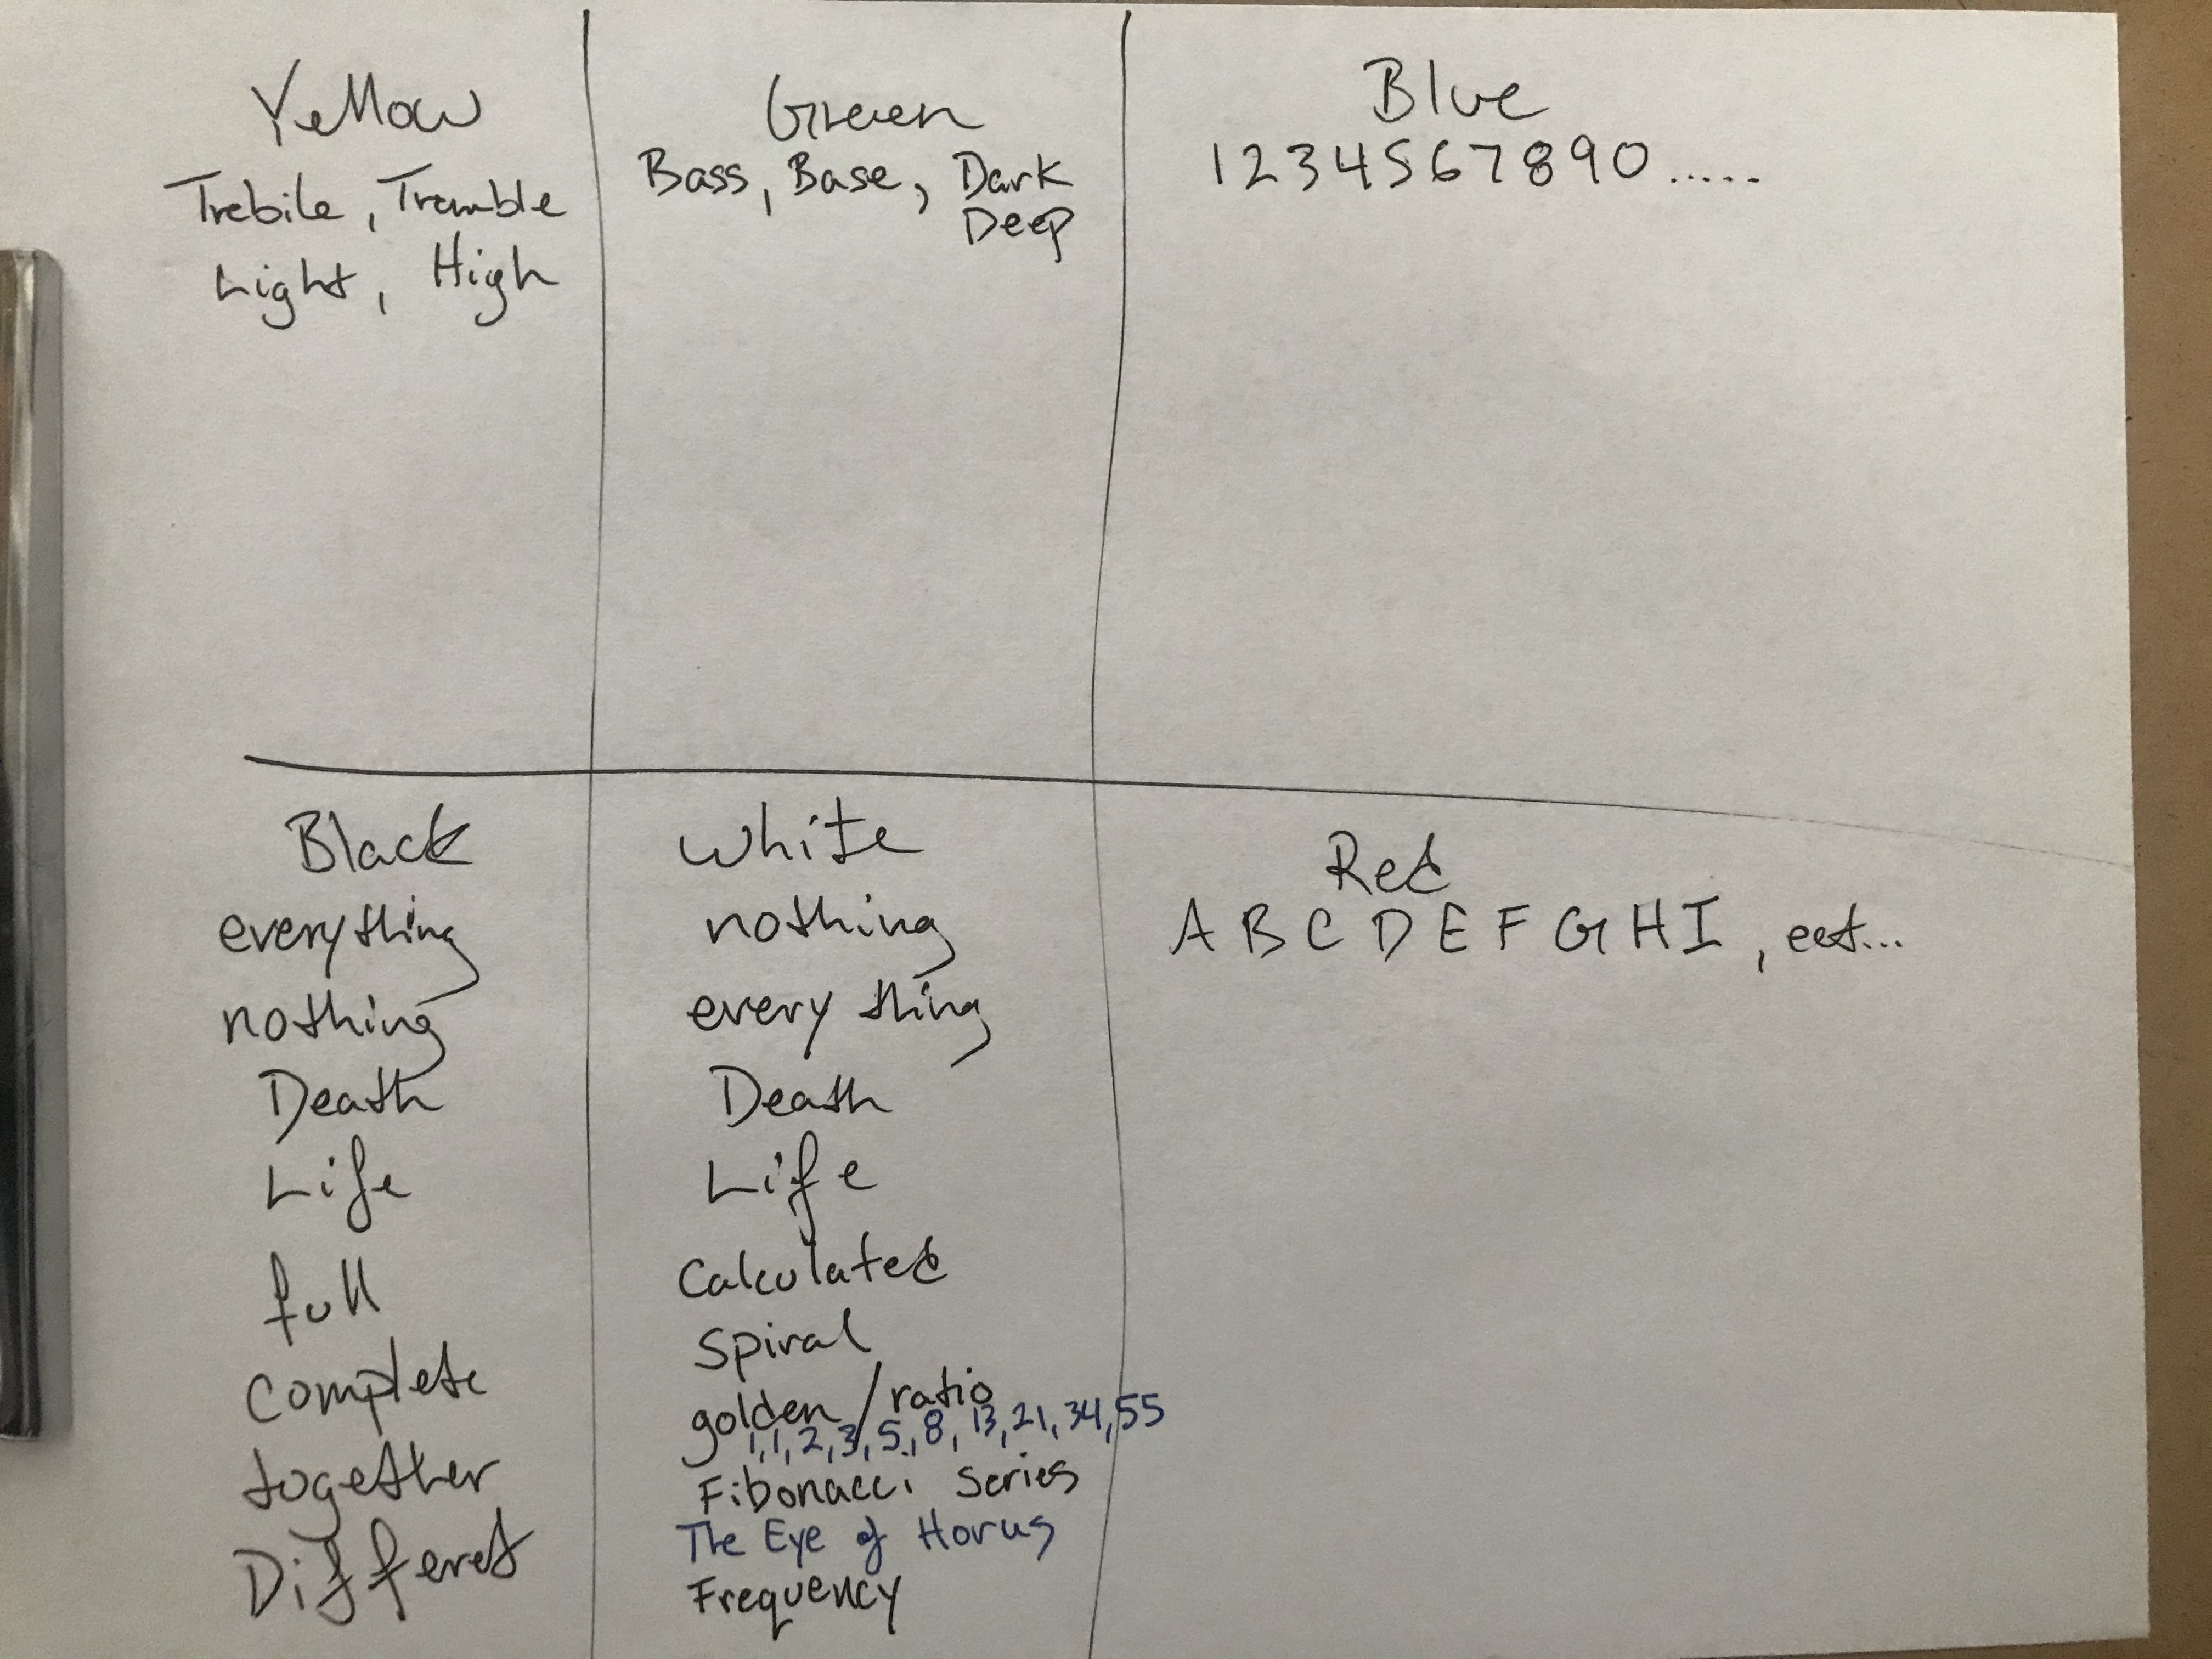 Yellow
Trebile, Tramble
Light, High
Green
Bass, Base, Dark
Deep
Blue
1234567890.....
Black
everything
nothing
Death
Life
full
Complete
together
Different
White
nothing
everything
Death
Life
Calculated
Spiral
golden/ratio
1,1,2,3,5,8,13,21,34,55
Fibonacci Series
The Eye of Horus
Frequency
Red
A B C D E F G H I, ect...